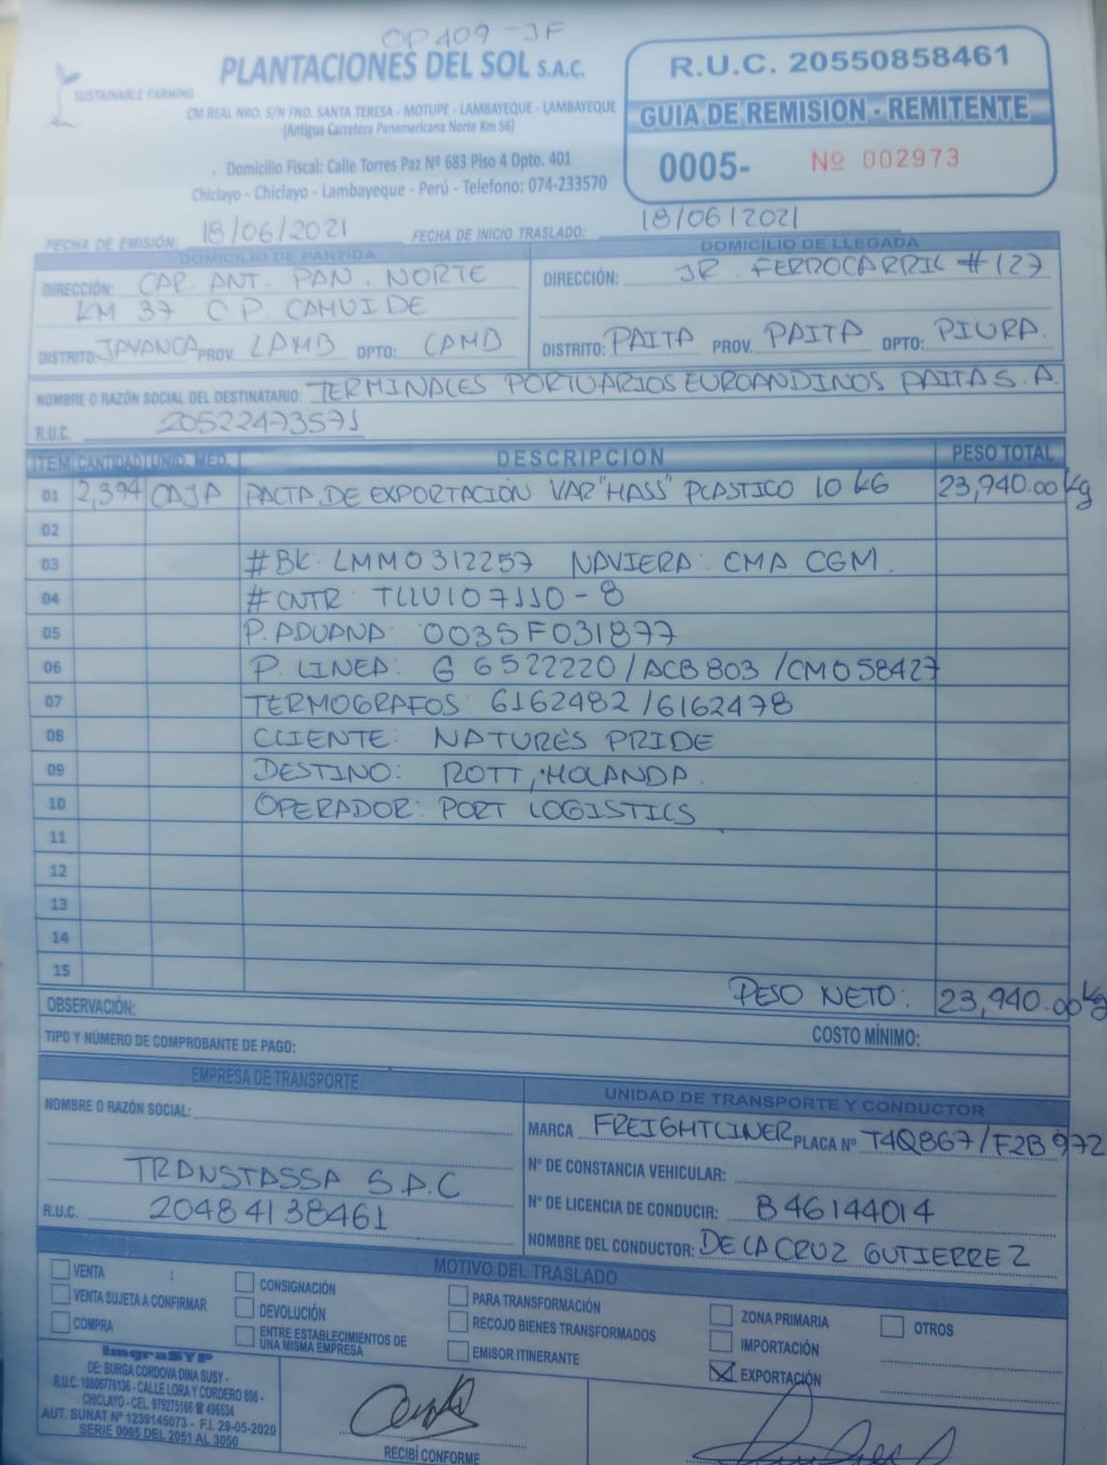 OP 409 - JF
SUSTAINABLE FARMING
PLANTACIONES DEL SOL S.A.C.
CM REAL NRO. S/N FND. SANTA TERESA - MOTUPE - LAMBAYEQUE - LAMBAYEQUE
(Antigua Carretera Panamericana Norte Km 56)
Domicilio Fiscal: Calle Torres Paz Nº 683 Piso 4 Dpto. 401
Chiclayo - Chiclayo - Lambayeque - Perú - Telefono: 074-233570
R.U.C. 20550858461
GUIA DE REMISION - REMITENTE
0005- Nº 002973
FECHA DE EMISIÓN: 18/06/2021 FECHA DE INICIO TRASLADO: 18/06/2021
DOMICILIO DE PARTIDA
DIRECCIÓN: CAR. ANT. PAN. NORTE
KM 37 C.P. CAMUIDE
DISTRITO: JAYANCA PROV. LAMB DPTO: LAMB
DOMICILIO DE LLEGADA
DIRECCIÓN: JR. FERROCARRIL #127
DISTRITO: PAITA PROV. PAITA DPTO: PIURA.
NOMBRE O RAZÓN SOCIAL DEL DESTINATARIO: TERMINALES PORTUARIOS EUROANDINOS PAITA S.A.
R.U.C. 20522473571
ITEM CANTIDAD UNID. MED. DESCRIPCION PESO TOTAL
01 2,394 CAJA PALTA DE EXPORTACIÓN VAR "HASS" PLASTICO 10 KG 23,940.00 Kg
02
03 #BK: LMM0312257 NAVIERA: CMA CGM.
04 #CNTR: TLLU107110-8
05 P. ADUANA: 0035F031877
06 P. LINEA: G 6522220/ACB803/CM058427
07 TERMOGRAFOS: 6162482/6162478
08 CLIENTE: NATURES PRIDE
09 DESTINO: ROTT, HOLANDA.
10 OPERADOR: PORT LOGISTICS
11
12
13
14
15
PESO NETO: 23,940.00 Kg
OBSERVACIÓN:
COSTO MÍNIMO:
TIPO Y NÚMERO DE COMPROBANTE DE PAGO:
EMPRESA DE TRANSPORTE
NOMBRE O RAZÓN SOCIAL:
TRANSTASSA S.A.C
R.U.C. 20484138461
UNIDAD DE TRANSPORTE Y CONDUCTOR
MARCA FREIGHTLINER PLACA Nº T4Q867/F2B972
Nº DE CONSTANCIA VEHICULAR:
Nº DE LICENCIA DE CONDUCIR: B46144014
NOMBRE DEL CONDUCTOR: DE LA CRUZ GUTIERREZ
MOTIVO DEL TRASLADO
VENTA
VENTA SUJETA A CONFIRMAR
COMPRA
CONSIGNACIÓN
DEVOLUCIÓN
ENTRE ESTABLECIMIENTOS DE
UNA MISMA EMPRESA
PARA TRANSFORMACIÓN
RECOJO BIENES TRANSFORMADOS
EMISOR ITINERANTE
ZONA PRIMARIA
IMPORTACIÓN
EXPORTACIÓN
OTROS
ImgraSYP
DE: BURGA CORDOVA DINA SUSY -
R.U.C. 10806776136 - CALLE LORA Y CORDERO 806 -
CHICLAYO - CEL. 979275166 ☎ 496534
AUT. SUNAT Nº 1239145073 - F.I. 29-05-2020
SERIE 0005 DEL 2051 AL 3050
RECIBÍ CONFORME